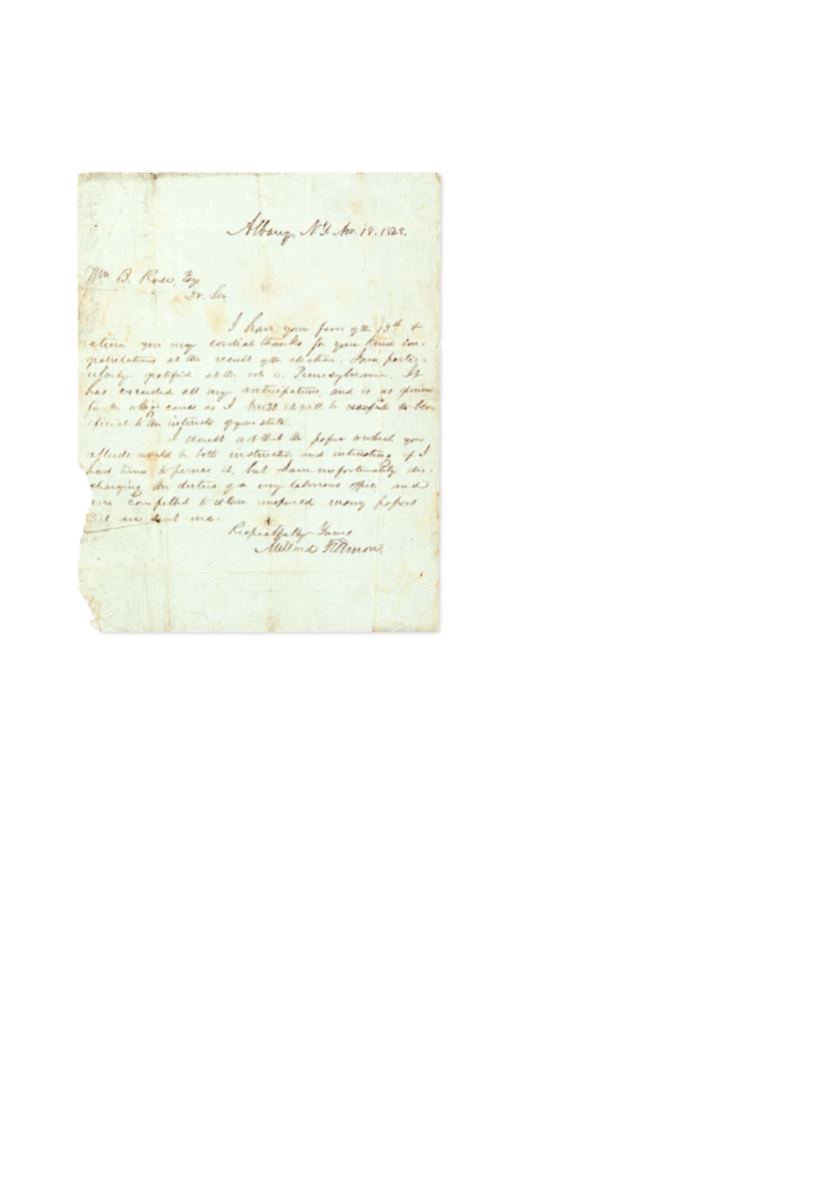 Albany, N.Y. Nov. 18. 1848.
Wm B. Rose, Esq
Dr. Sir
I have your favor of the 13th &
return you my cordial thanks for your kind con-
gratulations at the result of the election. I am partic-
ularly gratified at the vote in Pennsylvania. It
has exceeded all my anticipations, and is as
for the whig cause as I trust it will be ben-
eficial to the interests of your state.
I doubt not that the paper to which you
allude would be both instructive and interesting if I
had time to peruse it, but I am unfortunately dis-
charging the duties of a very laborious office and
am compelled to return unopened many papers
that are sent me.
Respectfully Yours
Millard Fillmore